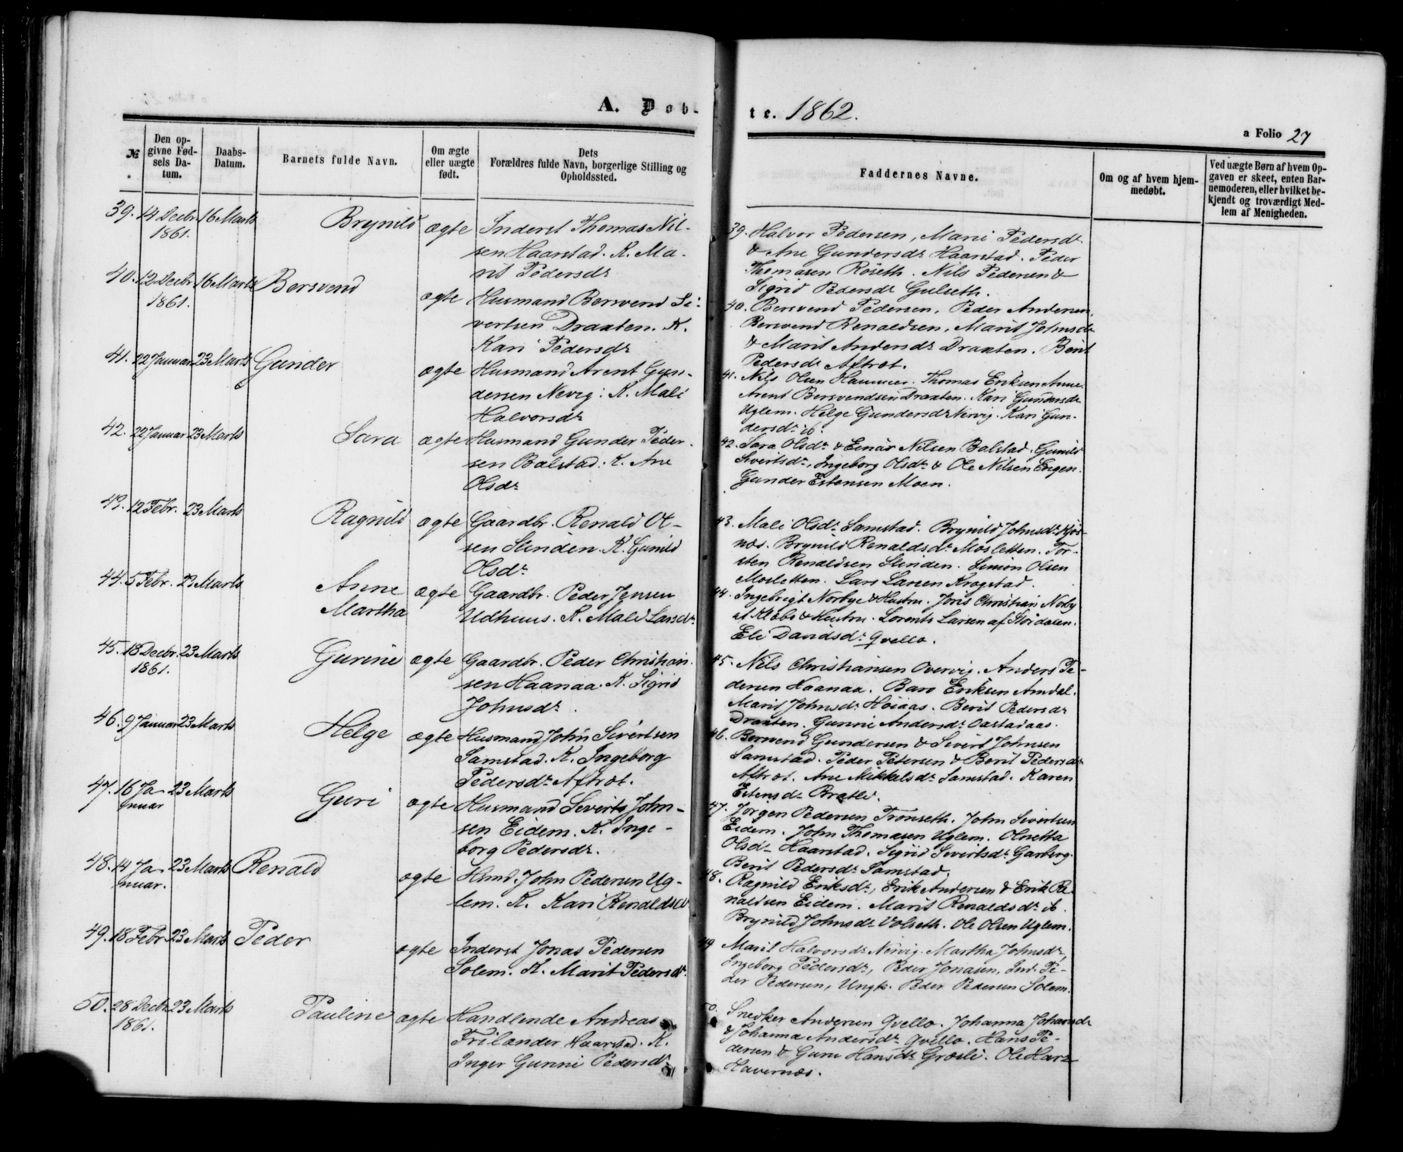 A. Døb-
te. 1862.
a Folio 27
№
Den op-
givne Fød-
sels Da-
tum.
Daabs-
Datum.
Barnets fulde Navn.
Om ægte
eller uægte
født.
Dets
Forældres fulde Navn, borgerlige Stilling og
Opholdssted.
Faddernes Navne.
Om og af hvem hjem-
medøbt.
Ved uægte Børn af hvem Op-
gaven er skeet, enten Bar-
nemoderen, eller hvilket be-
kjendt og troværdigt Med-
lem af Menigheden.
39. 14 Decbr 16 Marts Brynild ægte Inderst Thomas Nil-
1861. sen Haarstad. K. Ma-
rit Pedersdr
39. Halvor Pedersen, Marit Pedersdr
& Ane Gundersdr Haarstad. Peder
Thomasen Roseth. Nils Pedersen &
Sigrid Pedersdr Gulseth.
40. 12 Decbr 16 Marts Bersvend
1861. ægte Husmand Bersvend Si-
vertsen Draxten. K.
Kari Pedersdr
40. Bersvend Pedersen, Peder Andersen,
Bersvend Renaldsen, Marit Johnsdr
& Marit Andersdr Draxten. Berit
Pedersdr Aftret.
41. 22 Januar 23 Marts Gunder ægte Husmand Arent Gun-
dersen Nervig. K. Mali
Halvorsdr
41. Nils Olsen Hammer. Thomas Eriksen
Arent Bersvendsen Draxten. Kari Gundersdr
Uglem. Helge Gundersdr Nervig. Kari Gun-
dersdr ib.
42. 22 Januar 23 Marts Sara ægte Husmand Gunder Peder-
sen Balstad. K. Ane
Olsdr
42. Sara Olsdr & Einar Nilsen Balstad. Gunild
Sivertsdr, Ingeborg Olsdr & Ole Nilsen Engen.
Gunder Estensen Moen.
43. 12 Febr. 23 Marts Ragnild ægte Gaardbr. Renald Ol-
sen Slinden. K. Gunild
Olsdr
43. Mali Olsdr Samstad. Brynild Johnsdr Kjøs-
næs. Brynild Renaldsdr Mosletten. Tor-
sten Renaldsen Slinden. Simon Olsen
Mosletten. Lars Larsen Kragstad.
44. 5 Febr. 22 Marts Anne ægte Gaardbr. Peder Jensen
Martha Udhuus. K. Mali Larsdr
44. Ingebrigt Norbye & Hustru. Joris Christian Norby
af Klæbo & Hustru. Lorents Larsen af Stordalen.
Eli Davidsdr Qvello.
45. 18 Decbr. 23 Marts Gurine ægte Gaardbr. Peder Christian-
1861. sen Haanaa. K. Sigrid
Johnsdr.
45. Nils Christiansen Overvig. Anders Pe-
dersen Haanaa. Baro Eriksen Amdal.
Marit Johnsdr Hoiaas. Berit Pedersdr
Draxten. Gunni Andersdr
46. 9 Januar 23 Marts Helge ægte Husmand John Sivertsen
Samstad. K. Ingeborg
Pedersdr Aftret.
46. Bersvend Gundersen & Sivert Johnsen
Samstad. Peder Petersen & Berit Pedersdr
Aftret. Ane Mikkelsdr Samstad. Karen
Estensdr Bratli.
47. 16 Ja- 23 Marts Guri ægte Husmand Sivert John-
nuar sen Eidem. K. Inge-
borg Pedersdr.
47. Jørgen Pedersen Tronseth. John Sivertsen
Eidem. John Thomasen Uglem. Olnetta
Olsdr Haarstad. Sigrid Sivertsdr Garberg.
Berit Pedersdr Samstad.
48. 14 Ja- 23 Marts Renald ægte Hmd. John Pedersen Ug-
nuar. lem. K. Kari Renaldsdr
48. Ragnild Eriksdr, Erik Andersen & Erik Re-
naldsen Eidem. Marit Renaldsdr ib.
Brynild Johnsdr Volseth. Ole Olsen Uglem.
49. 18 Febr 23 Marts Peder ægte Inderst Jonas Pedersen
Solem. K. Marit Pedersdr.
49. Marit Halvorsdr Nervig. Martha Johnsdr,
Ingeborg Pedersdr, Peder Jonasen, Ind. Pe-
der Pedersen, Ungk. Peder Pedersen Solem.
50. 28 Decbr 23 Marts Pauline ægte Handlende Andreas
1861. Frilander Haarstad. K.
Inger Gunni Pedersdr
50. Snedker Andersen Qvello. Johanna Johansdr
& Johanna Andersdr Qvello. Hans Pe-
dersen & Guru Hansdr Græsli. Ole Hars
Havernæs.